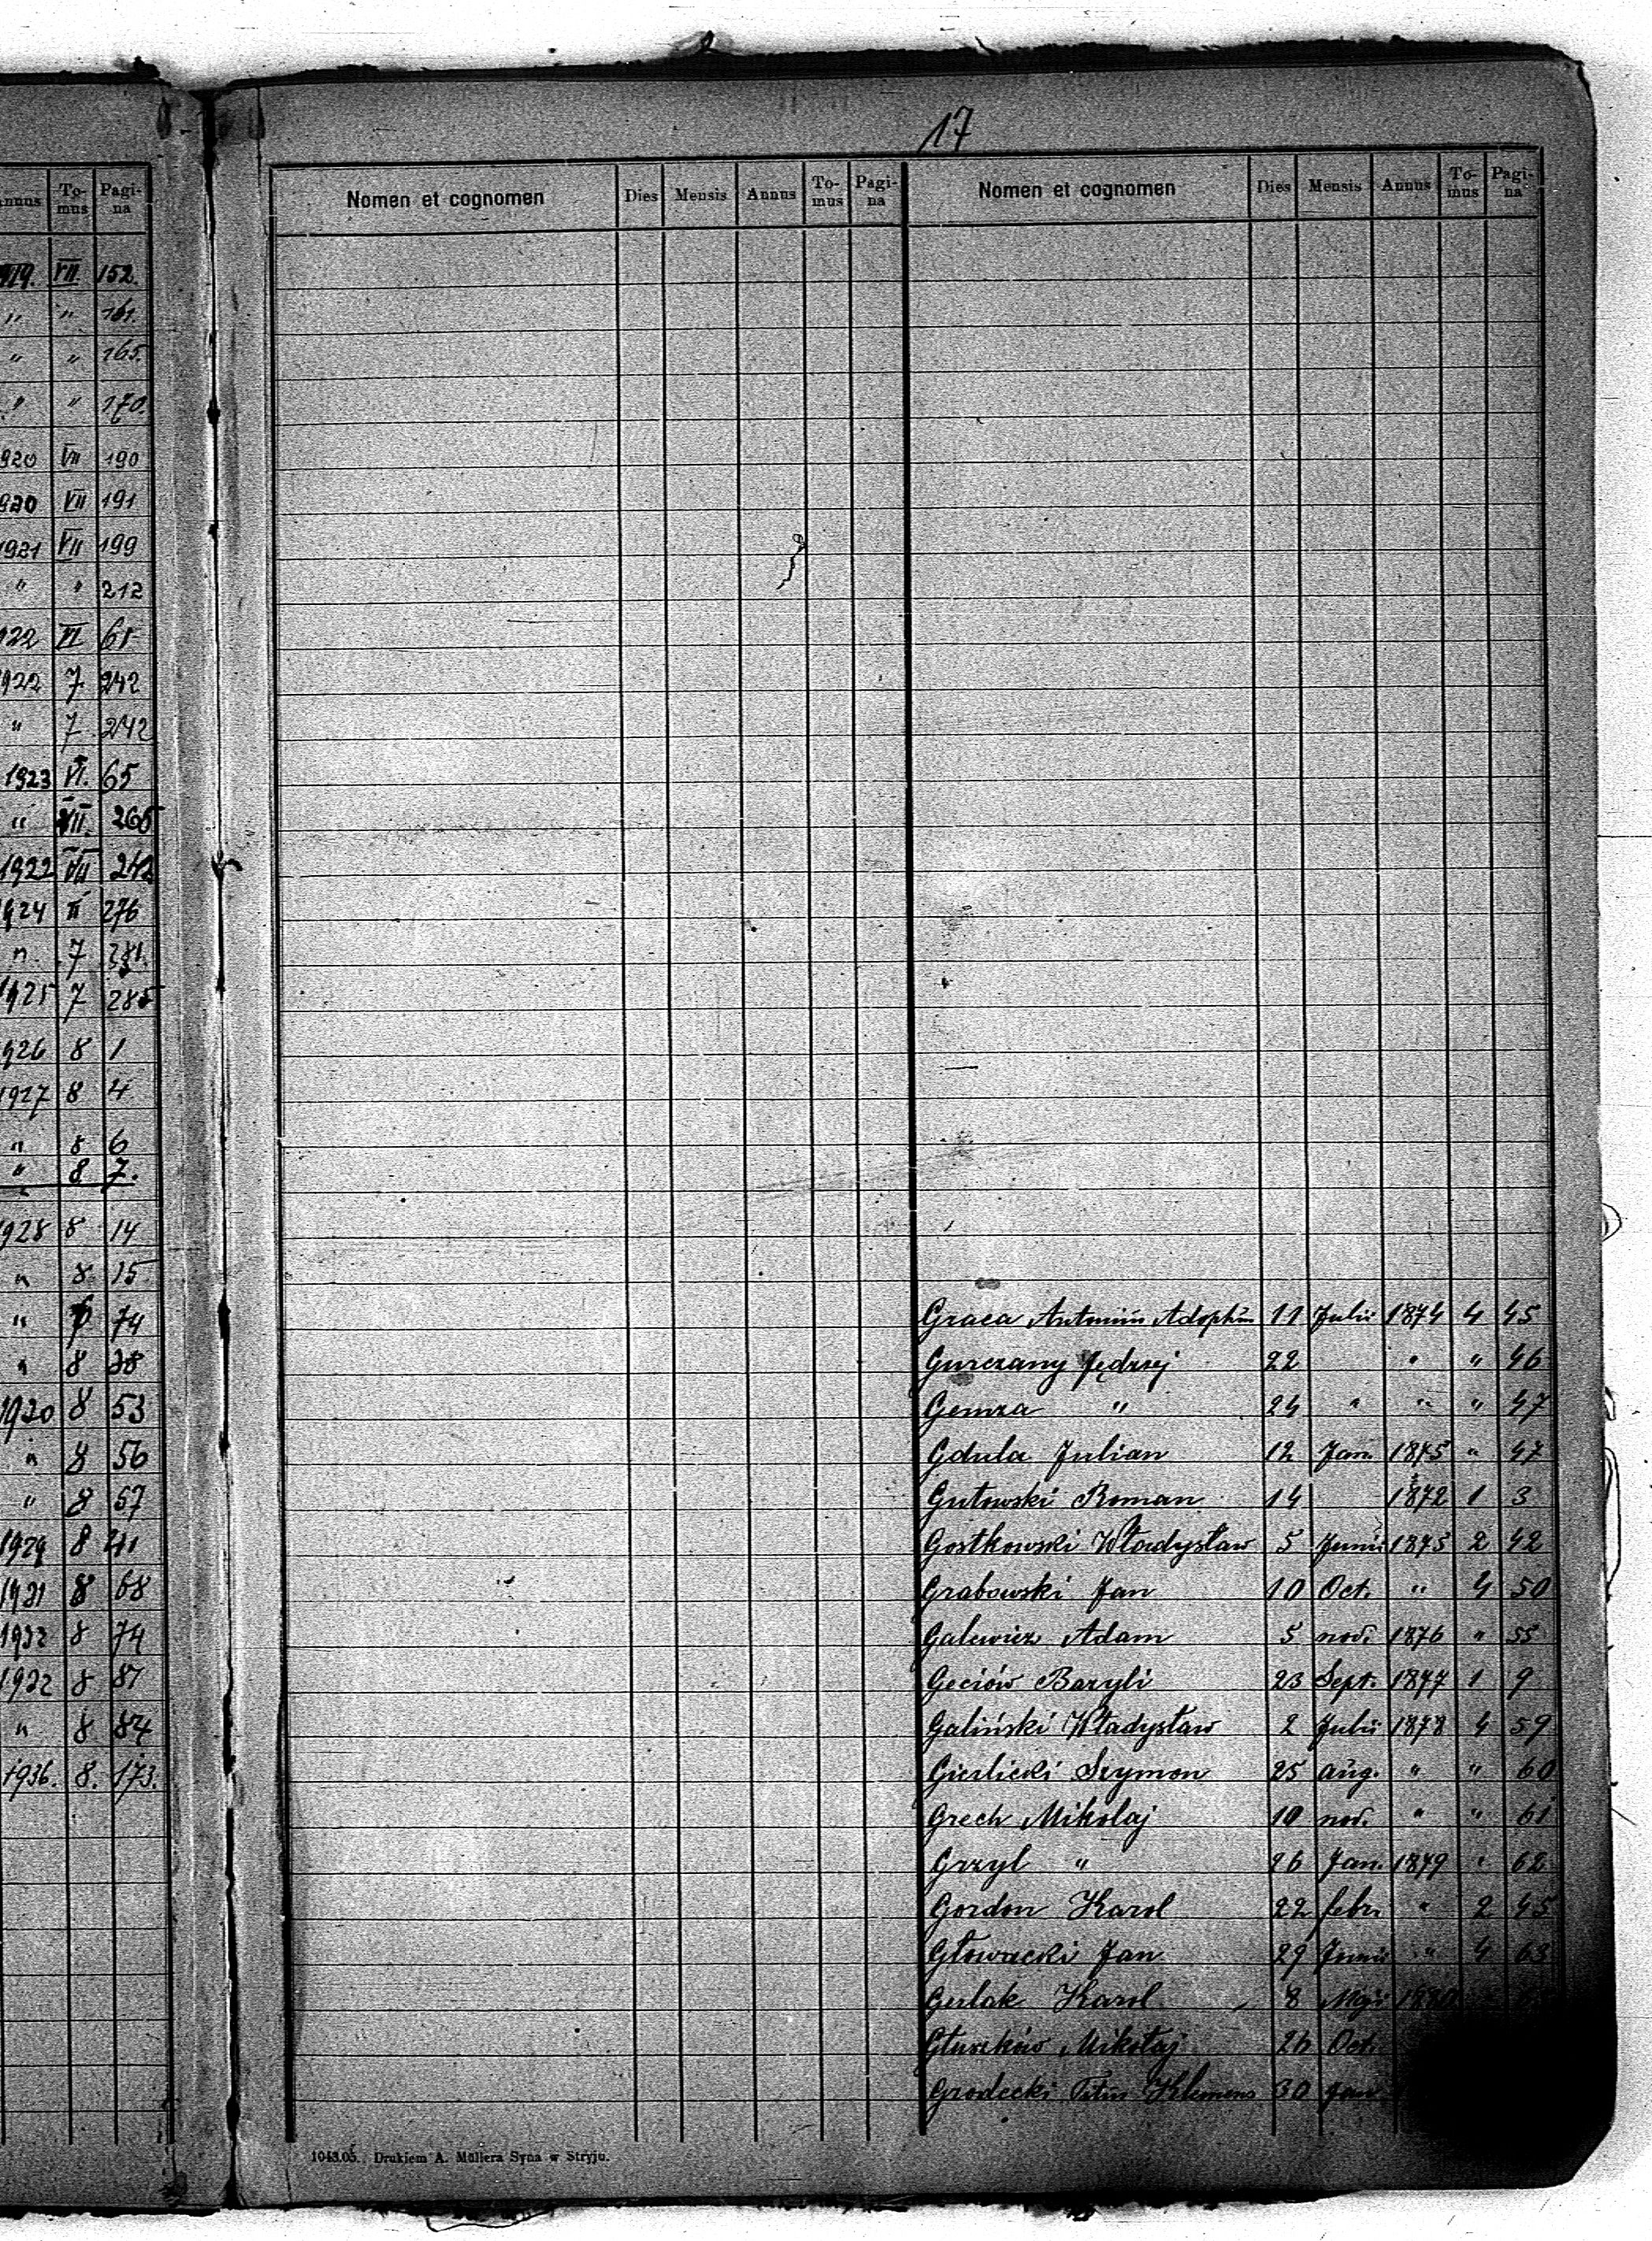 17
nnus To-mus Pagi-na
919. VII 152.
" " 161.
" " 165.
" " 170.
920 VII 190
920 VII 191
1921 VII 199
" " 212
922 VI 61
1922 7 242
" 7 242
1923 VI. 65
" VII. 265
1922 VII 242
1924 276
" 7 281.
1925 7 285
1926 8 1
1927 8 4
" 8 6
" 8 7.
1928 8 14
" 8 15
" 74
" 8 38
1930 8 53
" 8 56
" 8 57
1929 8 41
1931 8 68
1932 8 74
1932 8 81
" 8 84
1936. 8. 173.
Nomen et cognomen Dies Mensis Annus To-mus Pagi-na Nomen et cognomen Dies Mensis Annus To-mus Pagi-na
Graca Antoniús Adophús 11 Julii 1874 4 45
Gurczany Jędrzej 22 " " 46
Gemza " 24 " " " 47
Gdula Julian 12 Jan. 1875 " 47
Gutowski Roman 14 1872 1 3
Gostkowski Władysław 5 Junii 1875 2 42
Grabowski Jan 10 Oct. " 4 50
Galewicz Adam 5 nov. 1876 " 55
Geciów Bazyli 23 Sept. 1877 1 9
Galiński Władysław 2 Julii 1878 4 59
Gierlicki Szymon 25 aúg. " " 60
Grech Mikolaj 10 nov. " " 61
Grzyl " 26 Jan. 1879 " 62
Gordon Karol 22 febr. " 2 45
Głowacki Jan 29 Junii " 4 63
Gerlak Karol 8 Maji 1880
Głuszków Mikołaj 26 Oct.
Grodecki Titús Klemens 30 Jan
1043.05. Drukiem A. Müllera Syna w Stryju.